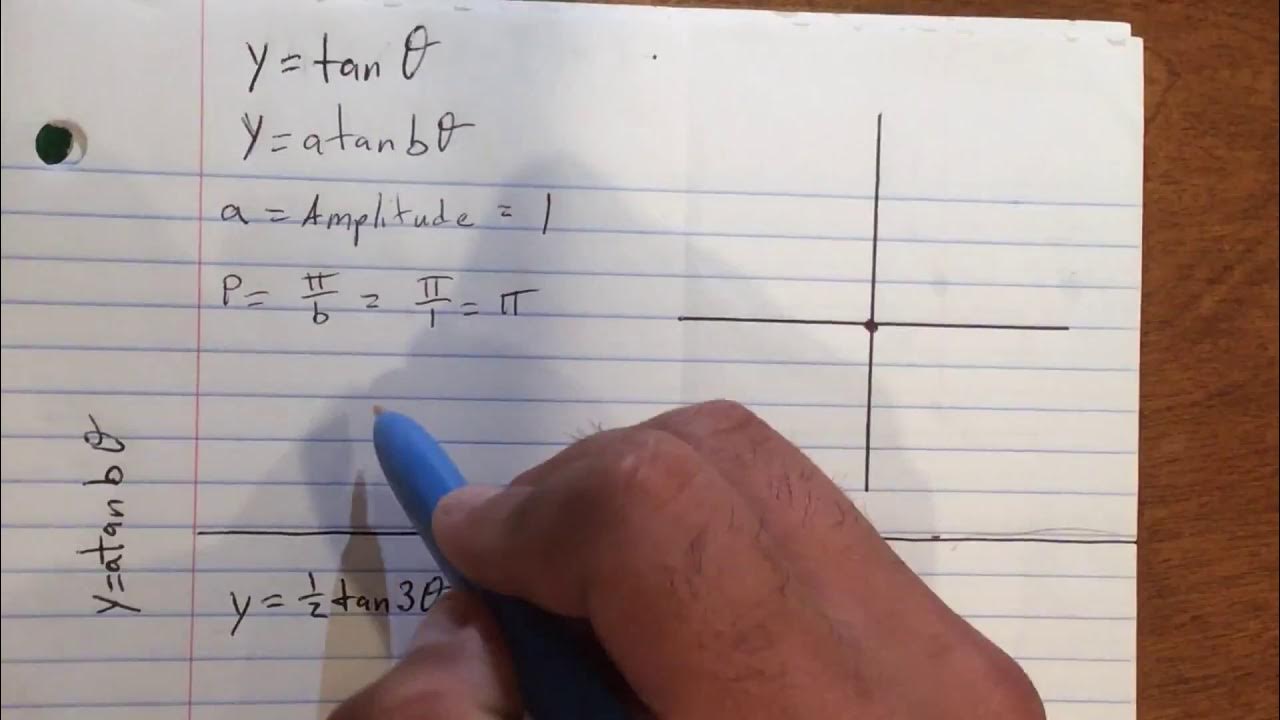 y = tan θ
y = a tan bθ
a = Amplitude = 1
P = π/b = π/1 = π
y = a tan b θ
y = 1/2 tan 3θ